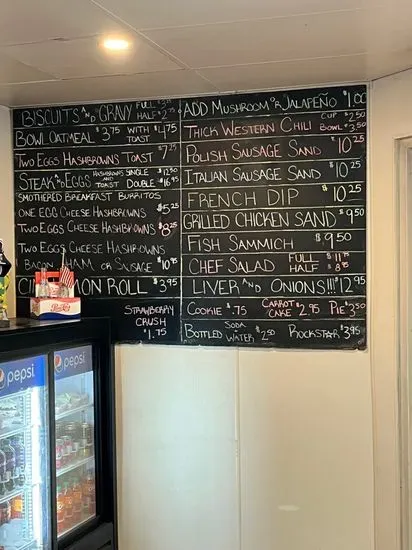 BISCUITS AND GRAVY FULL HALF
BOWL OATMEAL $3.75 WITH TOAST $4.75
TWO EGGS HASHBROWNS TOAST $7.25
STEAK AND EGGS HASHBROWNS AND TOAST SINGLE $12.50 DOUBLE $16.95
SMOTHERED BREAKFAST BURRITOS
ONE EGG CHEESE HASHBROWNS $5.25
TWO EGGS CHEESE HASHBROWNS
TWO EGGS CHEESE HASHBROWNS
BACON, HAM OR SAUSAGE $10.95
CINNAMON ROLL $3.95
STRAWBERRY
CRUSH
$1.75
ADD MUSHROOM OR JALAPEÑO $1.00
THICK WESTERN CHILI CUP $2.50 BOWL $3.50
POLISH SAUSAGE SAND $10.25
ITALIAN SAUSAGE SAND $10.25
FRENCH DIP $10.25
GRILLED CHICKEN SAND $9.50
FISH SAMMICH $9.50
CHEF SALAD FULL $11.75 HALF $8.75
LIVER AND ONIONS!!! $12.95
COOKIE $.75 CARROT CAKE $2.95 PIE $3.50
SODA - BOTTLED WATER $2.50 ROCKSTAR $3.95
pepsi
pepsi